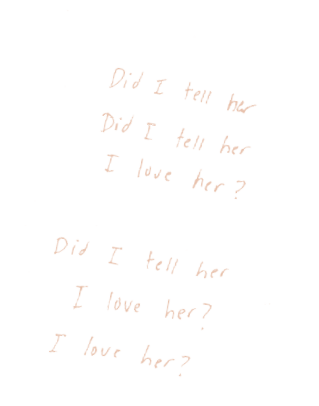 Did I tell her
Did I tell her
I love her?
Did I tell her
I love her?
I love her?